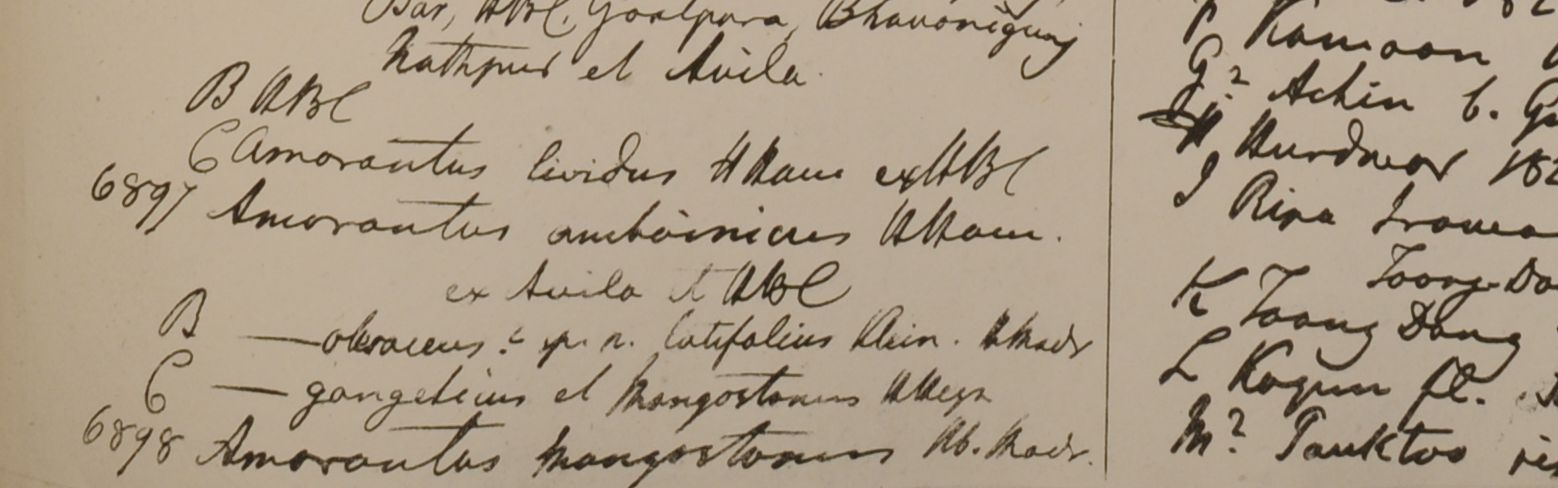 Bar, HBC, Goalpara, Bhavonigunj
Nathpur et Avila.
B HBC
C Amarantus lividus HHam ex HBC
6897 Amarantus amboinicus HHam.
ex Avila et HBC
B — oleraceus? sp. n. latifolius Klein. HMadr
C — gangeticus et Mangostanus HHeyn
6898 Amarantus mangostanus Hb. Madr.
Kamaon
G? Achin b.
H Hurdwar 182
I Ripa
Toong-Do
K Toong Dong
L fl.
M?